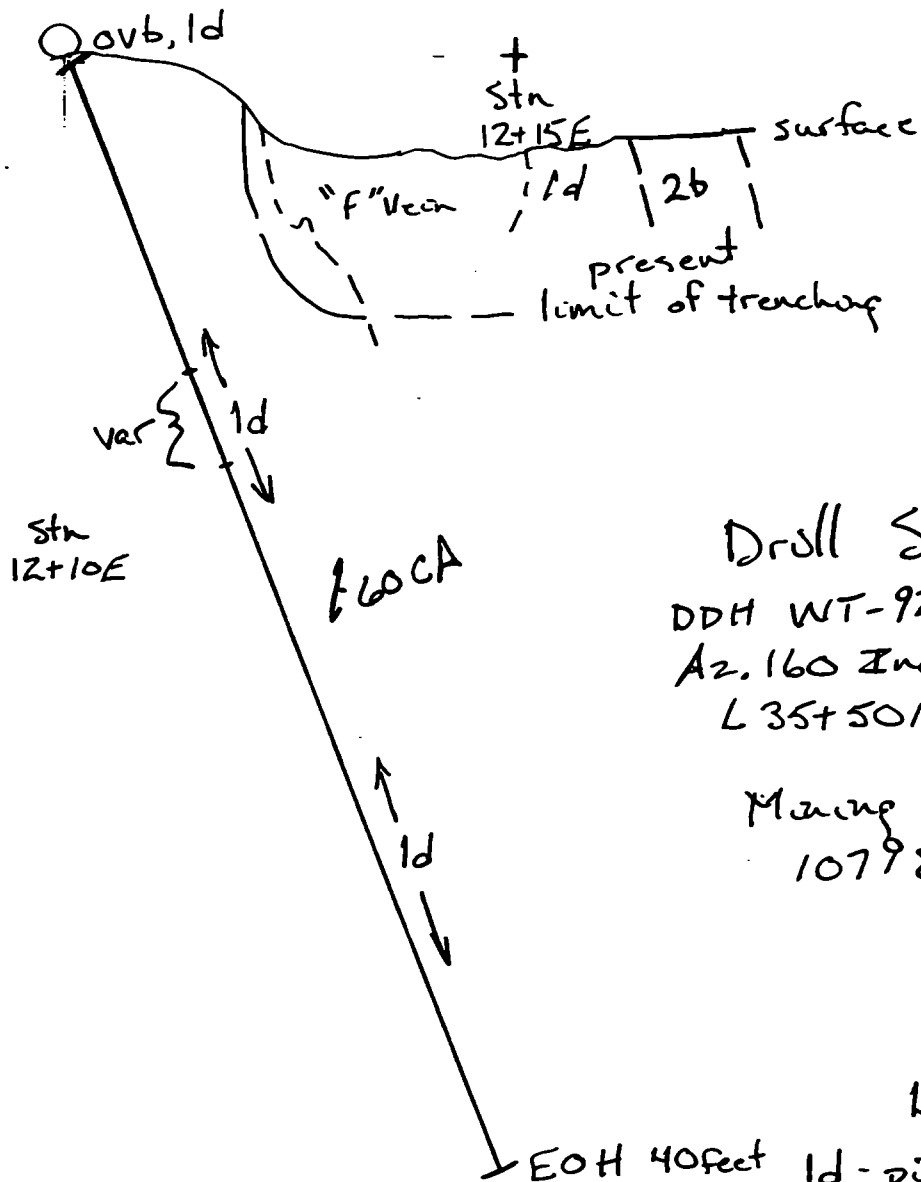 ovb, 1d
+
Stn
12+15E
surface
"F" Vein
1d
2b
present
limit of trenching
1d
var
Stn
12+10E
60 CA
Drill
DDH WT-92
Az. 160
L 35+50
Mining
1079
1d
EOH 40feet
1d -